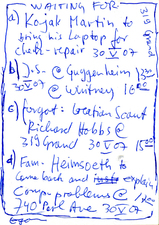 WAITING FOR:
a) Kojak Martin to
bring his laptop for
check-repair 30 V 07
319 Grand
b) J.S. @ Guggenheim 12
30 V 07 @ Whitney
c) forgot: Location Scout
Richard Hobbs @
319 Grand 30 V 07 15 00
d) Fam. Heimsoeth to
come back and explain
Compu problems @
740 Park Ave 30 V 07